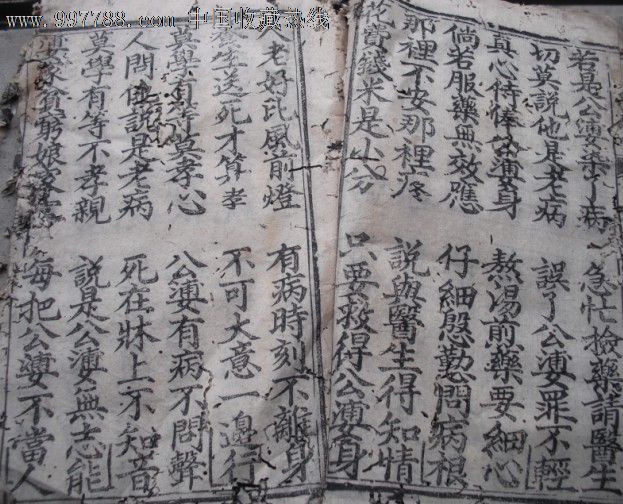 www.997788.com 中国收藏热线
若是公婆染了病 急忙檢藥請醫生
切莫說他是老病 誤了公婆罪不輕
真心待 婆身 熬湯煎藥要細心
倘若服藥無效應 仔細慇勤問病根
那裡不安那裡疼 說與醫生得知情
花費錢米是小分 只要救得公婆身
老好比風前燈 有病時刻不離身
生送死才算孝 不可大意一邊行
莫學有等莫孝心 公婆有病不問聲
人問他說是老病 死在牀上不知音
莫學有等不孝親 說是公婆無志能
家貧窮娘家 每把公婆不當人